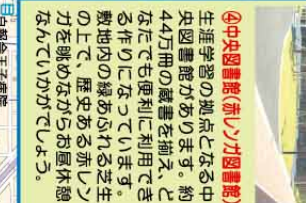 ④中央図書館(赤レンガ図書館)
生涯学習の拠点となる中
央図書館があります。約
44万冊の蔵書を揃え、ど
なたでも便利に利用でき
る作りになっています。
敷地内の緑あふれる芝生
の上で、歴史ある赤レン
ガを眺めながらお昼休憩
なんていかがでしょう。